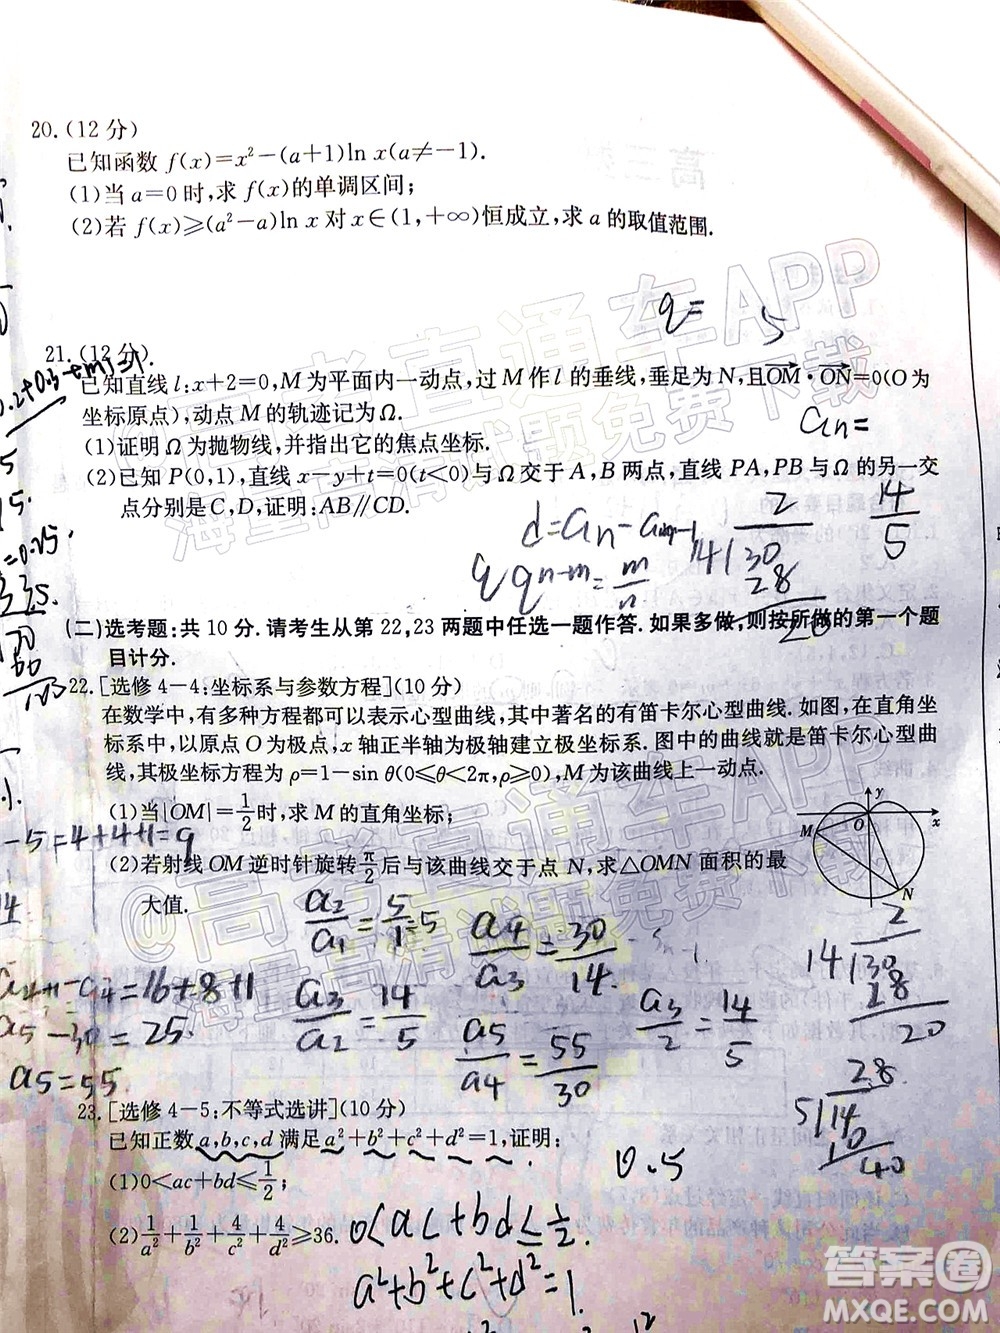 20.(12分)
已知函数 f(x)=x²-(a+1)ln x(a≠-1).
(1)当 a=0 时,求 f(x)的单调区间;
(2)若 f(x)⩾(a²-a)ln x 对 x∈(1,+∞)恒成立,求 a 的取值范围.
q= 5
21.(12分)
已知直线 l:x+2=0,M 为平面内一动点,过 M 作 l 的垂线,垂足为 N,且OM·ON=0(O为
坐标原点),动点 M 的轨迹记为Ω.
an=
(1)证明 Ω 为抛物线,并指出它的焦点坐标.
(2)已知 P(0,1),直线 x-y+t=0(t<0)与 Ω 交于 A,B 两点,直线 PA,PB 与 Ω 的另一交
点分别是 C,D,证明:AB∥CD.
(二)选考题:共 10 分.请考生从第 22,23 两题中任选一题作答.如果多做,则按所做的第一个题
目计分.
22.[选修 4-4:坐标系与参数方程](10 分)
在数学中,有多种方程都可以表示心型曲线,其中著名的有笛卡尔心型曲线.如图,在直角坐
标系中,以原点 O 为极点,x 轴正半轴为极轴建立极坐标系.图中的曲线就是笛卡尔心型曲
线,其极坐标方程为 ρ=1-sin θ(0⩽θ<2π,ρ⩾0),M 为该曲线上一动点.
(1)当|OM|=1/2时,求 M 的直角坐标;
(2)若射线 OM 逆时针旋转π/2后与该曲线交于点 N,求△OMN 面积的最
大值.
y
O
x
M
N
-5=4+4+1=9
a2/a1=5/1=5
a4/a3=30/14
=16+8+1
a3/a2=14/5
a3/2=14/5
a5-30=25.
a5/a4=55/30
a5=55
14 30 28 20
5 14 10 40
23.[选修 4-5:不等式选讲](10 分)
已知正数 a,b,c,d 满足 a²+b²+c²+d²=1,证明:
(1)0<ac+bd⩽1/2;
0.5
(2)1/a²+1/b²+4/c²+4/d²⩾36.
0<ac+bd≤1/2
a²+b²+c²+d²=1.
@高考直通车APP
海量高清试题免费下载
@高考直通车APP
海量高清试题免费下载
答案圈
MXQE.COM